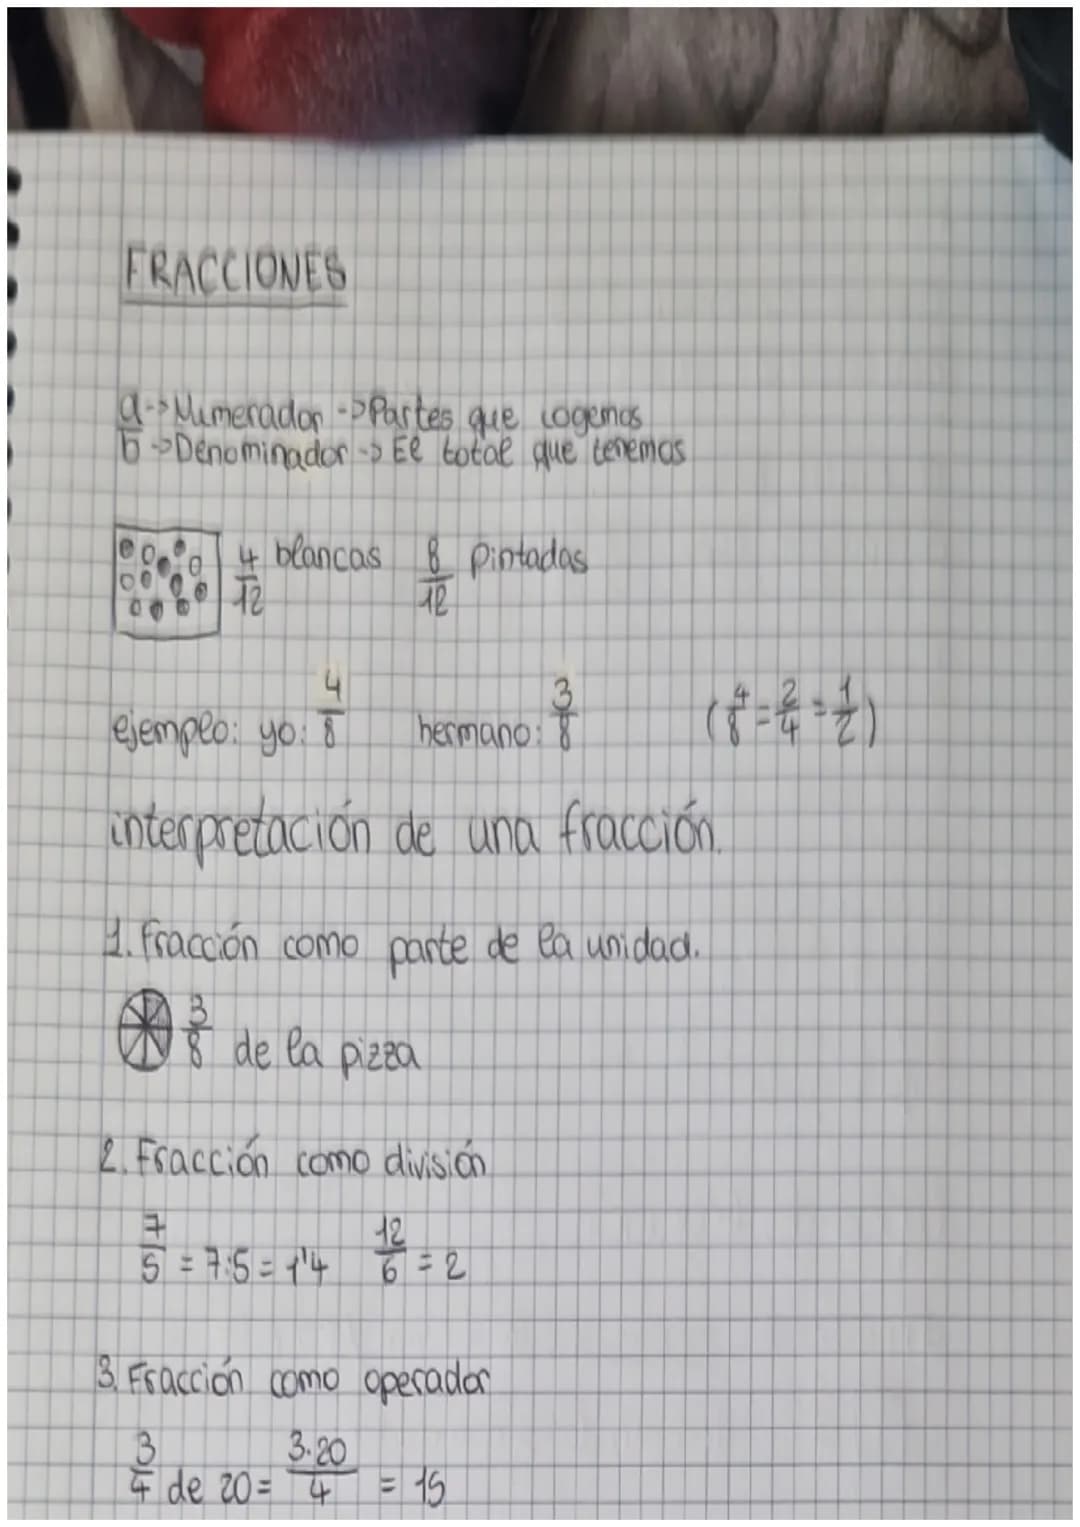 FRACCIONES
a -> Numerador -> Partes que cogemos
b -> Denominador -> El total que tenemos
4/12 blancas 8/12 pintadas
ejemplo: yo: 4/8 hermano: 3/8 (4/8 = 2/4 = 1/2)
interpretación de una fracción.
1. Fracción como parte de la unidad.
3/8 de la pizza
2. Fracción como división
7/5 = 7:5 = 1'4 12/6 = 2
3. Fracción como operador
3/4 de 20 = 3·20/4 = 15